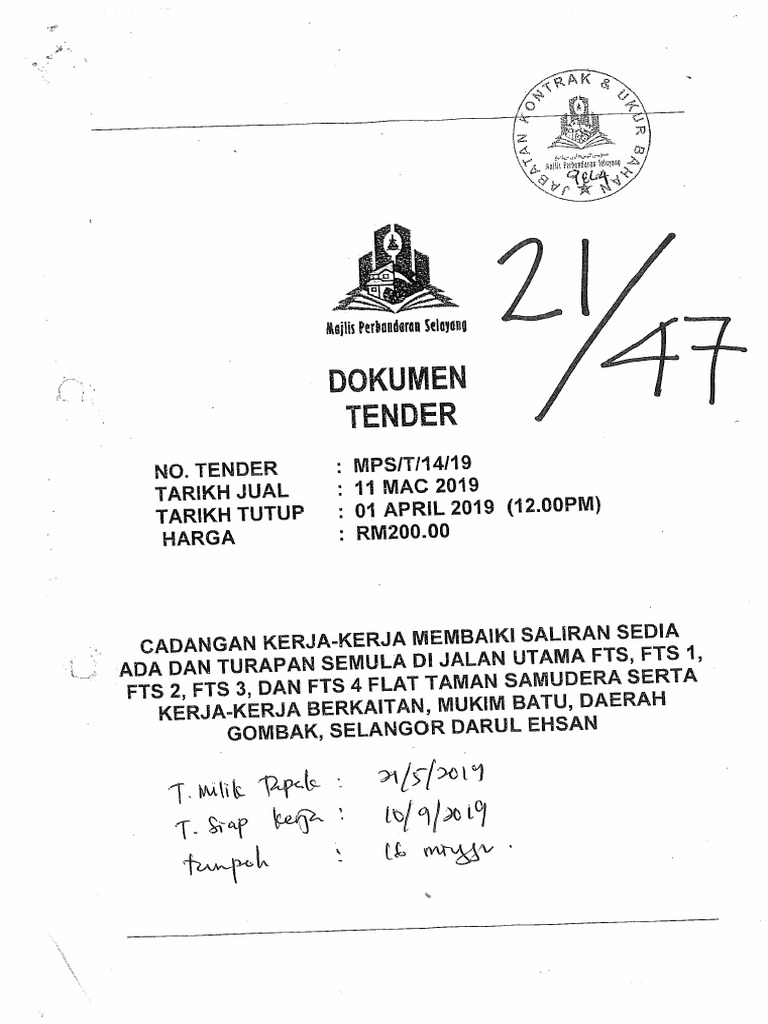 JABATAN KONTRAK & UKUR BAHAN
Majlis Perbandaran Selayang
21/47
Majlis Perbandaran Selayang
DOKUMEN
TENDER
NO. TENDER : MPS/T/14/19
TARIKH JUAL : 11 MAC 2019
TARIKH TUTUP : 01 APRIL 2019 (12.00PM)
HARGA : RM200.00
CADANGAN KERJA-KERJA MEMBAIKI SALIRAN SEDIA
ADA DAN TURAPAN SEMULA DI JALAN UTAMA FTS, FTS 1,
FTS 2, FTS 3, DAN FTS 4 FLAT TAMAN SAMUDERA SERTA
KERJA-KERJA BERKAITAN, MUKIM BATU, DAERAH
GOMBAK, SELANGOR DARUL EHSAN
T. Milik Tapak : 21/5/2019
T. Siap Kerja : 10/9/2019
tempoh : 16 minggu.